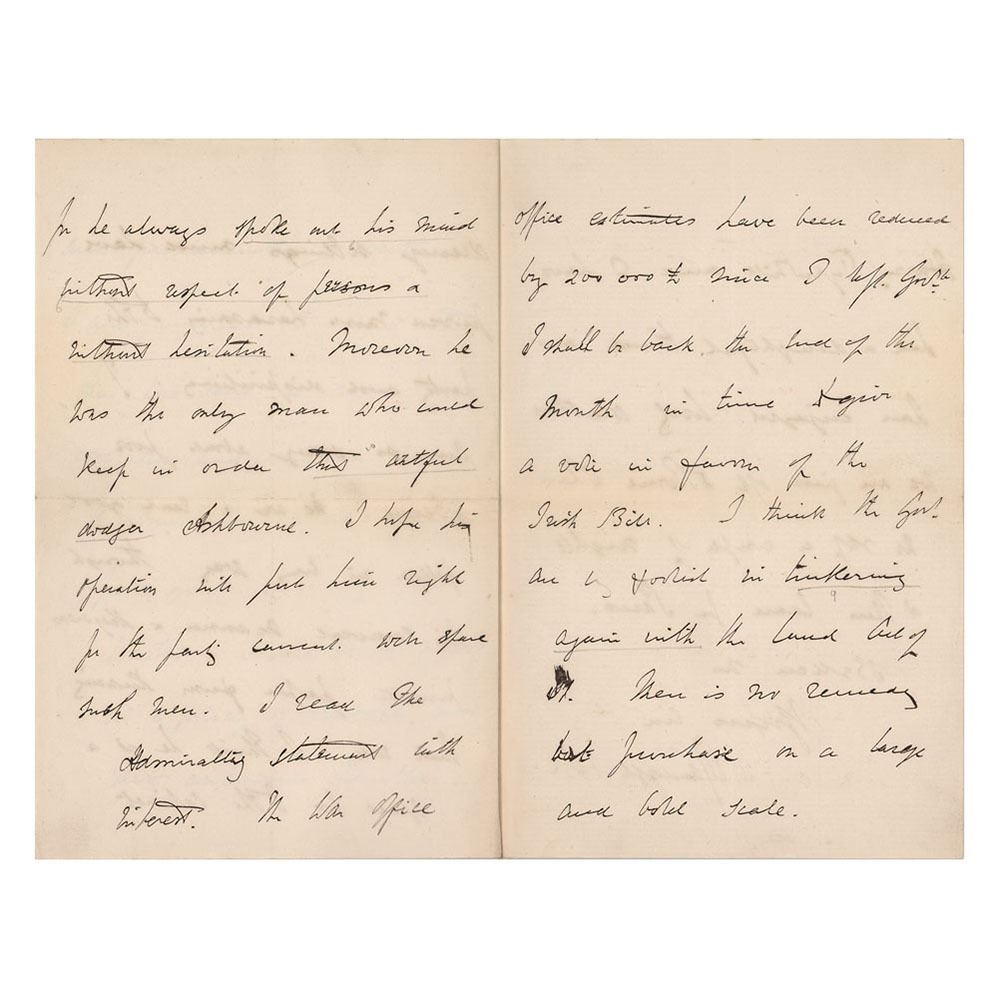 for he always spoke out his mind
without respect of persons &
without hesitation. Moreover he
was the only man who could
keep in order that artful
dodger Ashbourne. I hope his
operation will put him right
for the party cannot well spare
such men. I read the
Admiralty statement with
interest. The War Office
office estimates have been reduced
by 200 000 £ since I left Govt.
I shall be back the end of the
month in time to give
a vote in favour of the
Irish Bill. I think the Govt.
are foolish in tinkering
again with the Land Act of
There is no remedy
but purchase on a large
and bold scale.